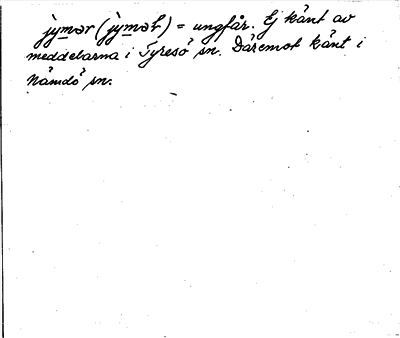 jymər (jymət) = ungfår. Ej känt av
meddelarna i Tyresö sn. Däremot känt i
Nämdö sn.